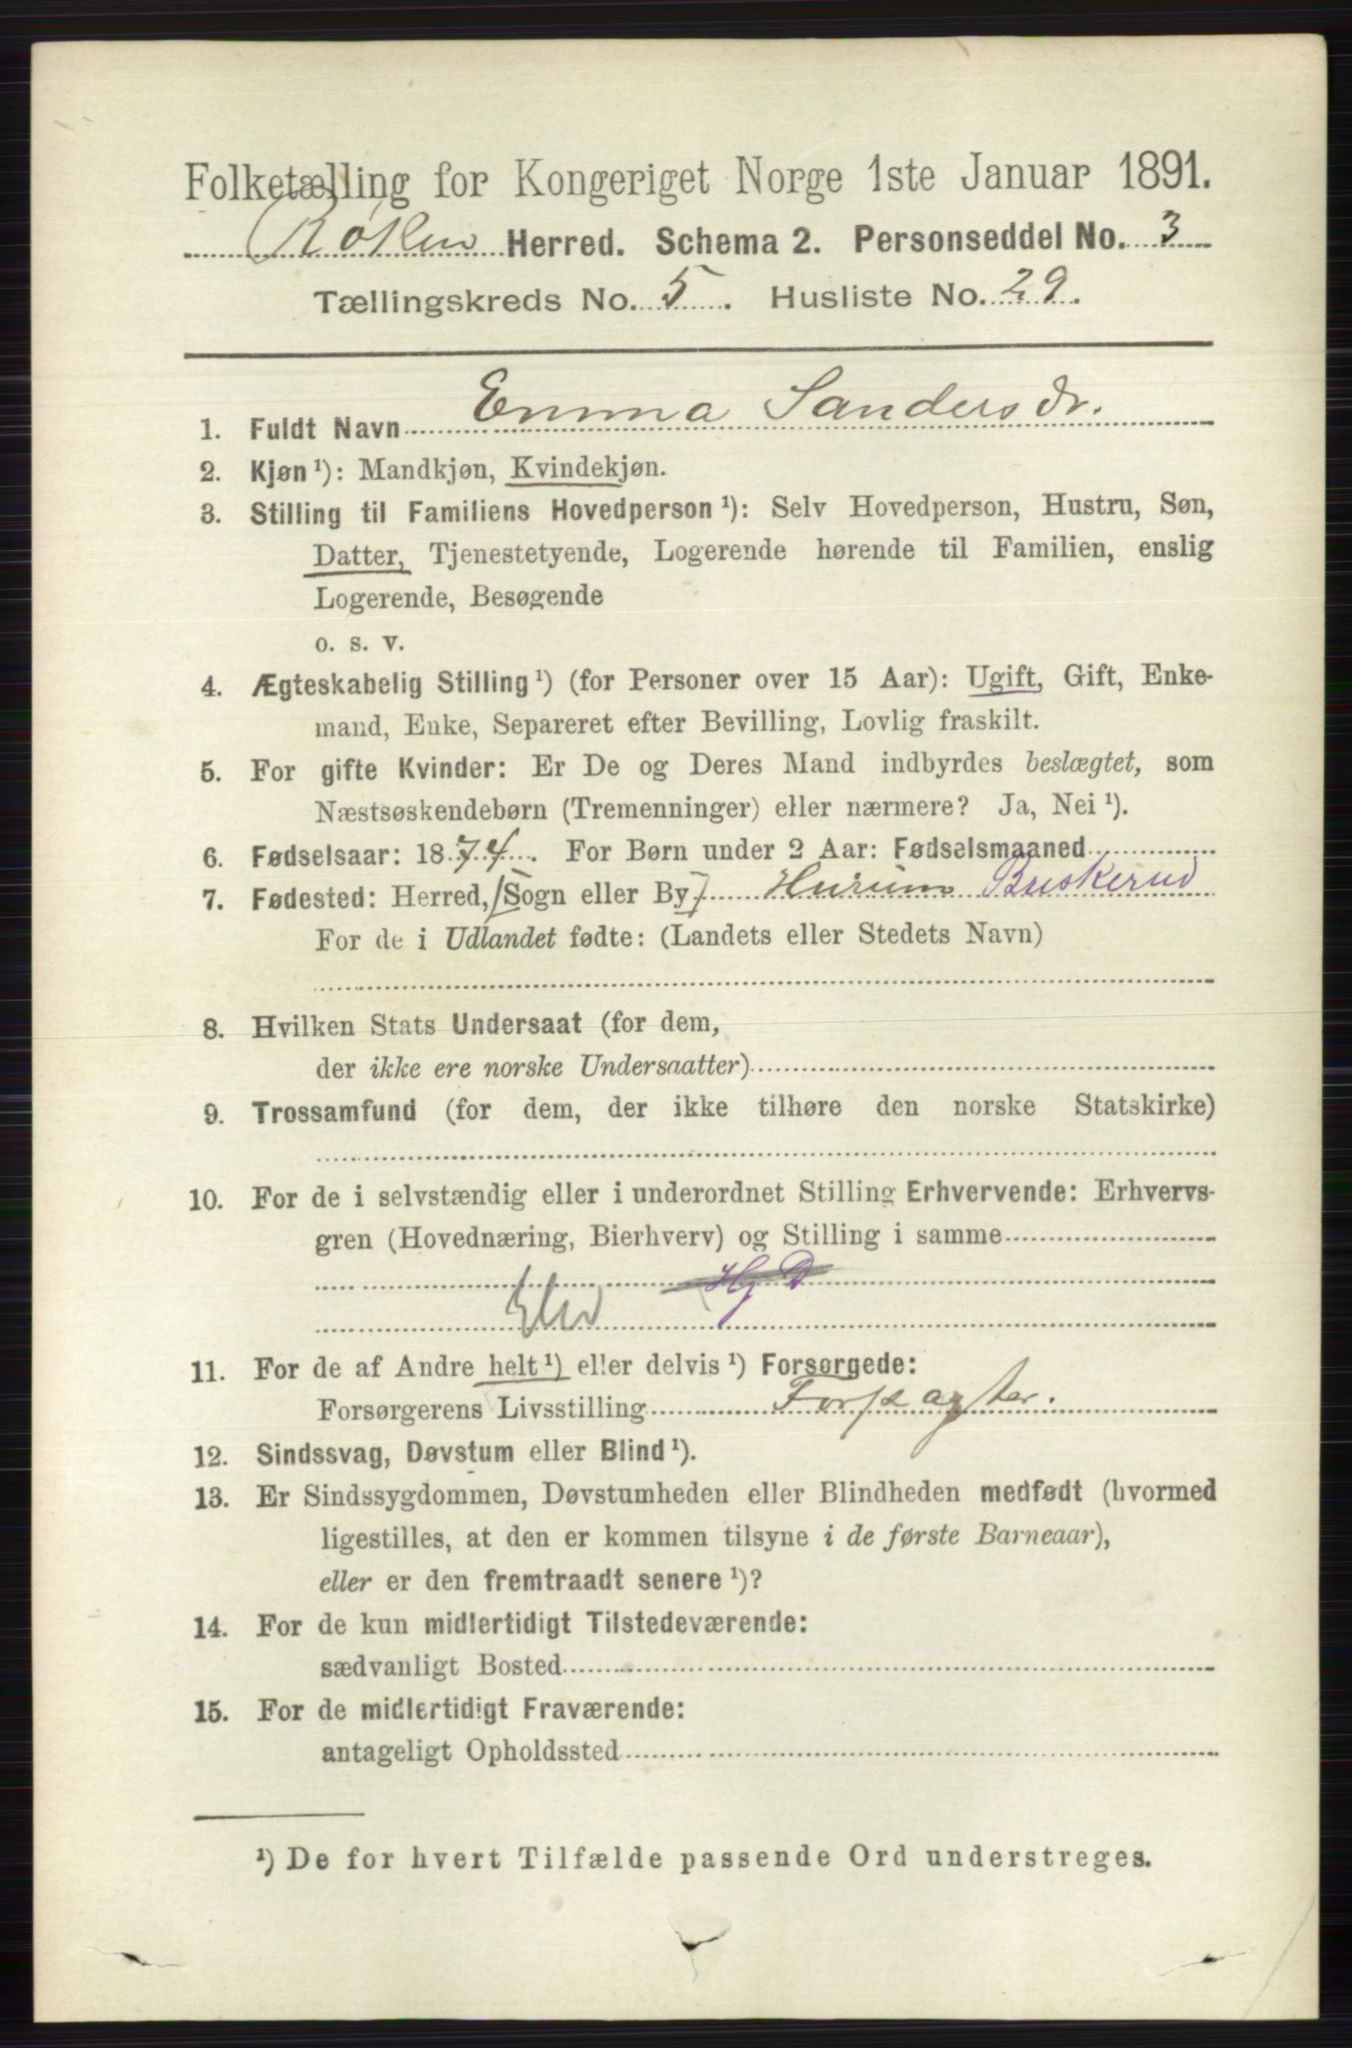 Folketælling for Kongeriget Norge 1ste Januar 1891.
Røken Herred. Schema 2. Personseddel No. 3
Tællingskreds No. 5. Husliste No. 29.
1. Fuldt Navn Emma Sandersdr.
2. Kjøn ¹): Mandkjøn, Kvindekjøn.
3. Stilling til Familiens Hovedperson ¹): Selv Hovedperson, Hustru, Søn,
Datter, Tjenestetyende, Logerende hørende til Familien, enslig
Logerende, Besøgende
o. s. v.
4. Ægteskabelig Stilling ¹) (for Personer over 15 Aar): Ugift, Gift, Enke-
mand, Enke, Separeret efter Bevilling, Lovlig fraskilt.
5. For gifte Kvinder: Er De og Deres Mand indbyrdes beslægtet, som
Næstsøskendebørn (Tremenninger) eller nærmere? Ja, Nei ¹).
6. Fødselsaar: 1874. For Børn under 2 Aar: Fødselsmaaned
7. Fødested: Herred, [Sogn eller By] Hurum Buskerud
For de i Udlandet fødte: (Landets eller Stedets Navn)
8. Hvilken Stats Undersaat (for dem,
der ikke ere norske Undersaatter)
9. Trossamfund (for dem, der ikke tilhøre den norske Statskirke)
10. For de i selvstændig eller i underordnet Stilling Erhvervende: Erhvervs-
gren (Hovednæring, Bierhverv) og Stilling i samme
Hj D
11. For de af Andre helt ¹) eller delvis ¹) Forsørgede:
Forsørgerens Livsstilling Forpagter.
12. Sindssvag, Døvstum eller Blind ¹).
13. Er Sindssygdommen, Døvstumheden eller Blindheden medfødt (hvormed
ligestilles, at den er kommen tilsyne i de første Barneaar),
eller er den fremtraadt senere ¹)?
14. For de kun midlertidigt Tilstedeværende:
sædvanligt Bosted
15. For de midlertidigt Fraværende:
antageligt Opholdssted
¹) De for hvert Tilfælde passende Ord understreges.